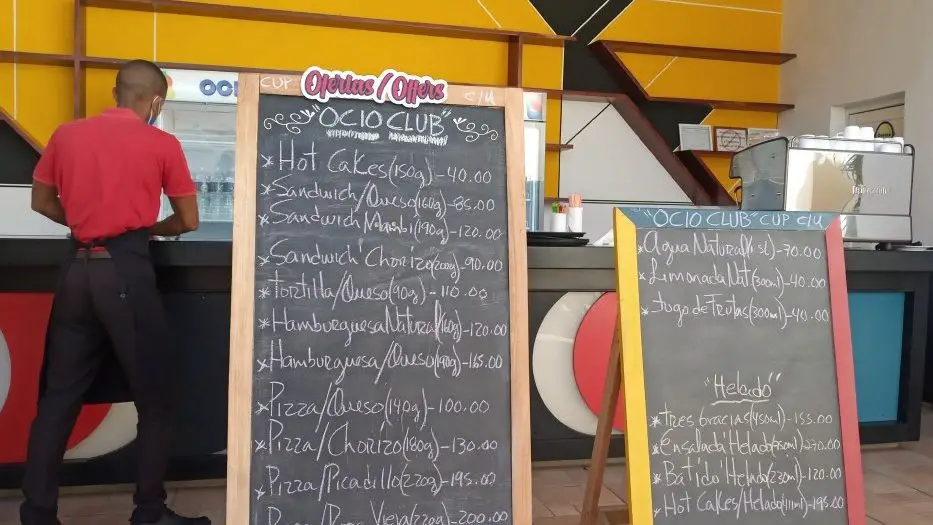 OCI
CUP Ofertas/Offers C/U
"OCIO CLUB"
* Hot Cakes(150g)-40.00
* Sandwich/Queso(160g)-85.00
* Sandwich (190g)-120.00
* Sandwich Chorizo(220g)-90.00
* Tortilla/Queso(90g)-110.00
* Hamburguesa Natural(160g)-120.00
* Hamburguesa/Queso(190g)-165.00
* Pizza/Queso(140g)-100.00
* Pizza/Chorizo(180g)-130.00
* Pizza/Picadillo(220g)-195.00
Pizza/Ropa Vieja(220g)-200.00
"OCIO CLUB" CUP C/U
* Agua Natural(1.5L)-70.00
* Limonada Nat(300ml)-40.00
* Jugo de Frutas(300ml)-40.00
"Helado"
* Tres Gracias(450ml)-155.00
* Ensalada Helado(750ml)270.00
* Batido Helado(230ml)-120.00
* Hot Cakes/Helado(411ml)-195.00